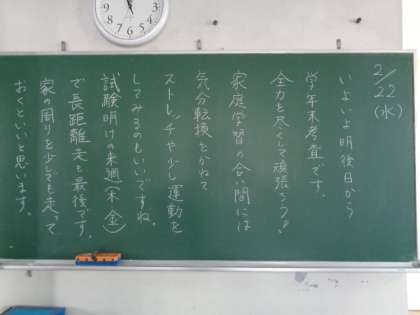 2/22(水)
いよいよ明後日から
学年末考査です。
全力を尽くして頑張ろう!
家庭学習の合い間には
気分転換をかねて
ストレッチや少し運動を
してみるのもいいですね。
試験明けの来週(木、金)
で長距離走も最後です。
家の周りを少しでも走って
おくといいと思います。